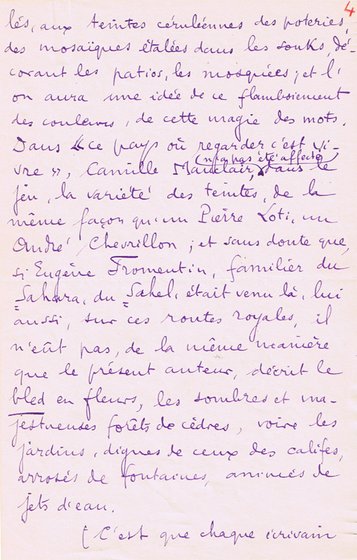 4
lés, aux teintes céruléennes des poteries,
des mosaïques étalées dans les souks, dé-
corant les patios, les mosquées ; et l'
on aura une idée de ce flamboiement
des couleurs, de cette magie des mots.
Dans « ce pays où regarder c'est vi-
(n'a pas été affecté
vre », Camille Mauclair, dans le
jeu, la variété des teintes, de la
même façon qu'un Pierre Loti, un
André Chevrillon ; et sans doute que,
si Eugène Fromentin, familier du
Sahara, du Sahel, était venu là, lui
aussi, sur ces routes royales, il
n'eût pas, de la même manière
que le présent auteur, décrit le
bled en fleurs, les sombres et ma-
jestueuses forêts de cèdres, voire les
jardins, dignes de ceux des califes,
arrosés de fontaines, animés de
jets d'eau.
(C'est que chaque écrivain